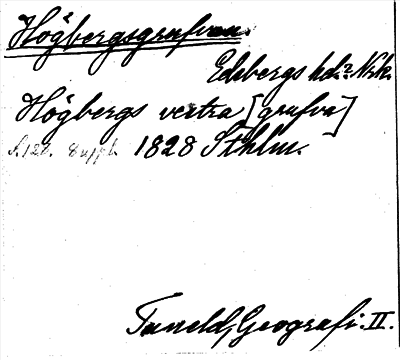 Högbergsgrufvan.
Edsbergs hd. Nrk.
Högbergs vestra [grufva]
s. 122. 8 uppl. 1828 Sthlm.
Tuneld, Geografi. II.